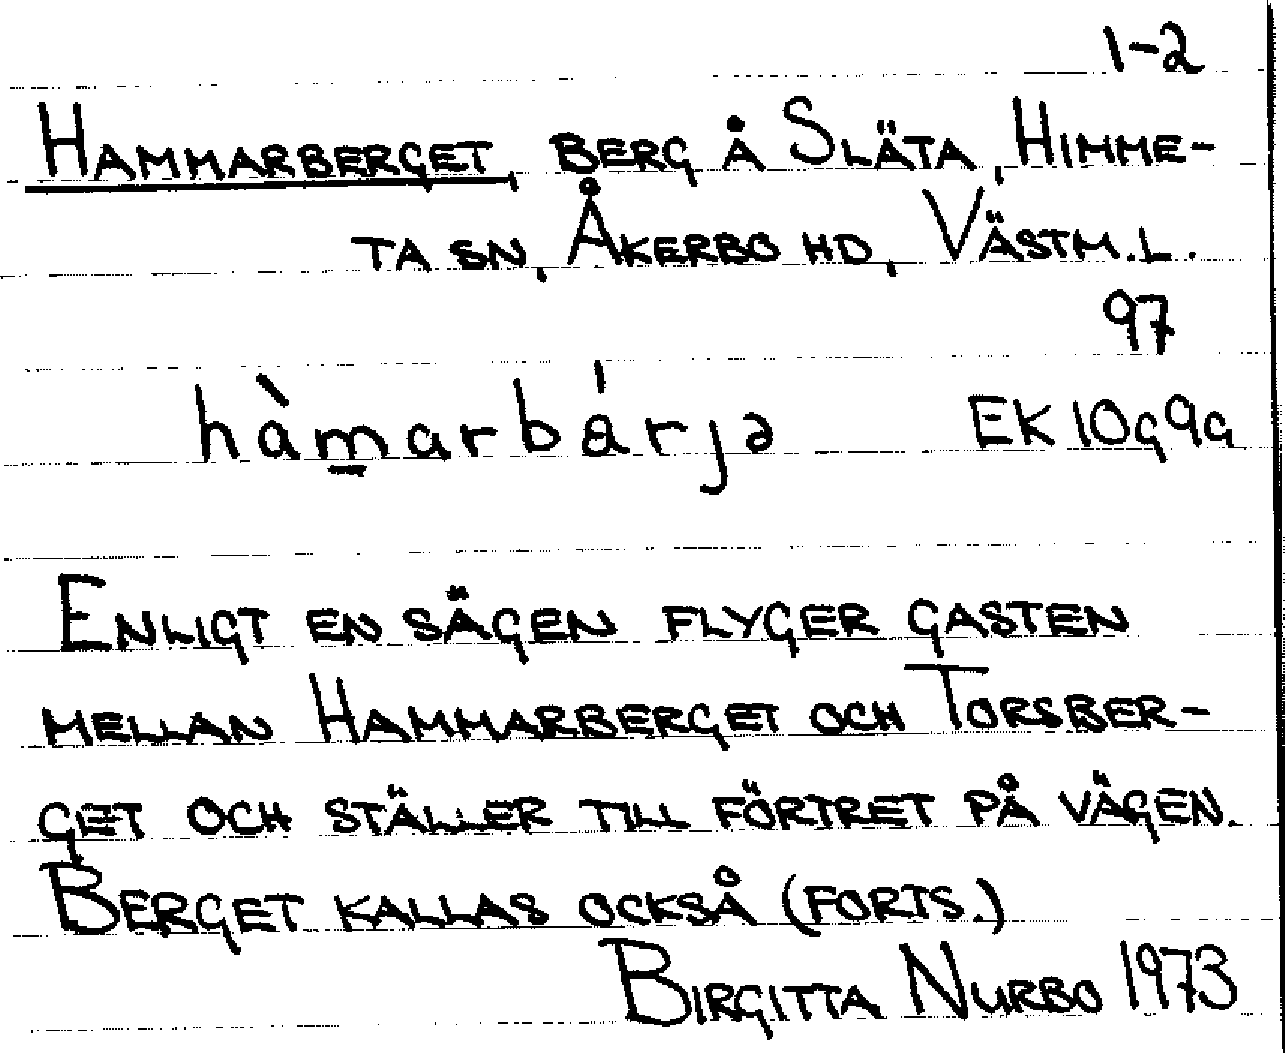 1-2
HAMMARBERGET, BERG Å SLÄTA, HIMME-
TA SN, ÅKERBO HD, VÄSTM.L.
97
hàmarbárjə EK 10g9a
ENLIGT EN SÄGEN FLYGER GASTEN
MELLAN HAMMARBERGET OCH TORSBER-
GET OCH STÄLLER TILL FÖRTRET PÅ VÄGEN.
BERGET KALLAS OCKSÅ (FORTS.)
BIRGITTA NURBO 1973